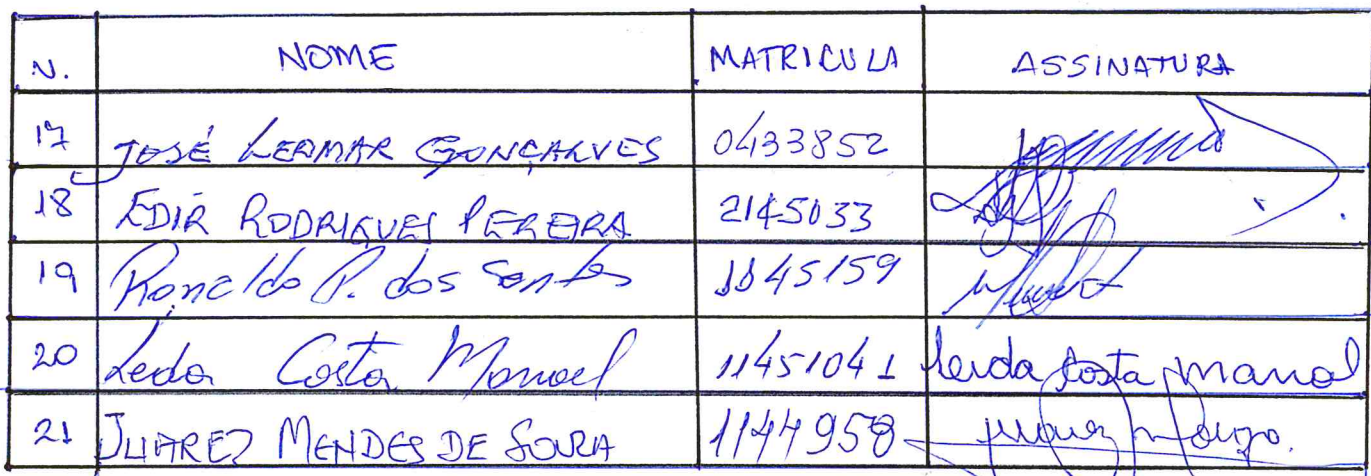 N. NOME MATRICULA ASSINATURA
17 JOSÉ LERMAR GONÇALVES 0433852
18 EDIR RODRIGUES PEREIRA 2145033
19 Ronaldo P. dos Santos 1145159
20 Leda Costa Manoel 11451041 Leida Costa Manoel
21 JUAREZ MENDES DE SOUZA 1144958 Juarez M Souza.